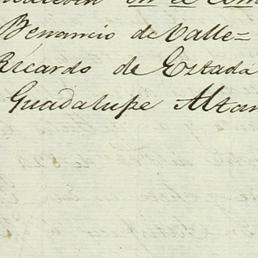 en el
Venancio de Valle=
Ricardo de Estada
Guadalupe Altam